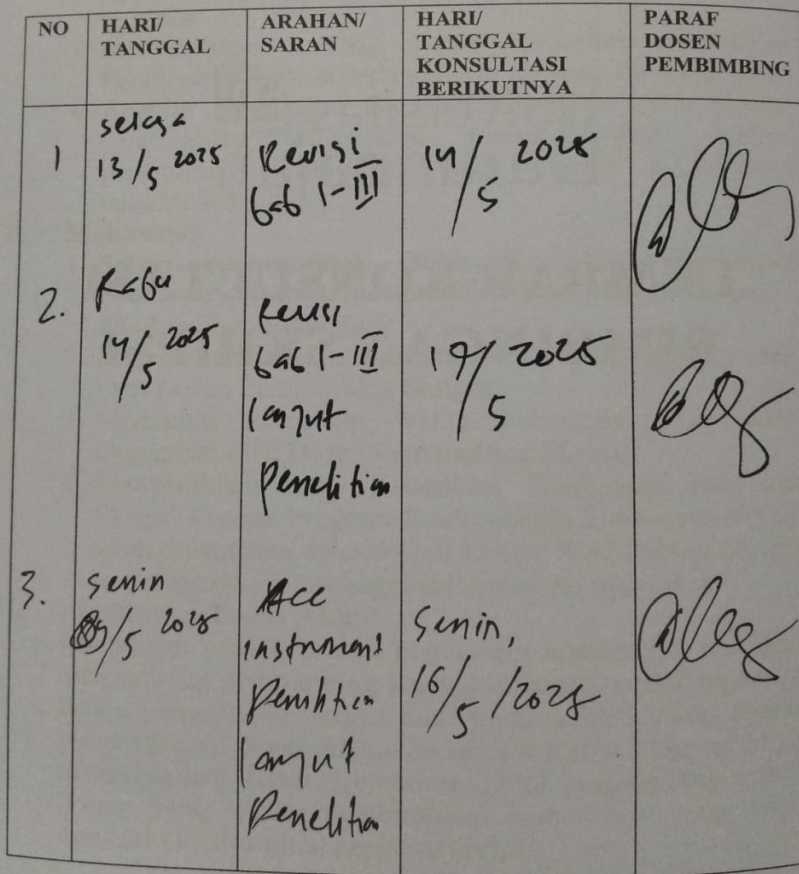 NO
HARI/
TANGGAL
ARAHAN/
SARAN
HARI/
TANGGAL
KONSULTASI
BERIKUTNYA
PARAF
DOSEN
PEMBIMBING
1
selasa
13/5 2025
Revisi
bab I-III
14/5 2025
2.
Rabu
14/5 2025
Revisi
bab I-III
lanjut
penelitian
19/5 2025
3.
Senin
/5 2025
Acc
instrument
Penelitian
lanjut
Penelitian
Senin,
16/5/2025